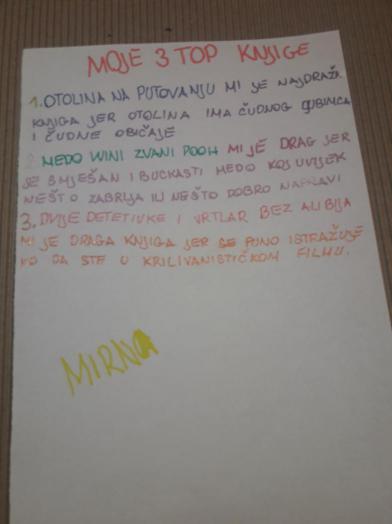 MOJE 3 TOP KNJIGE
1. OTOLINA NA PUTOVANJU MI JE NAJDRAŽA
KNJIGA JER OTOLINA IMA ČUDNOG LJUBIMCA
I ČUDNE OBIČAJE
2. MEDO WINI ZVANI POOH MI JE DRAG JER
JE SMJEŠAN I BUCKASTI MEDO KOJ UVIJEK
NEŠTO ZABRLJA ILI NEŠTO DOBRO NAPRAVI
3. DVIJE DETETIVKE I VRTLAR BEZ ALIBIJA
MI JE DRAGA KNJIGA JER SE PUNO ISTRAŽUJE
KO DA STE U KRILIVANISTIČKOM FILMU.
MIRNA